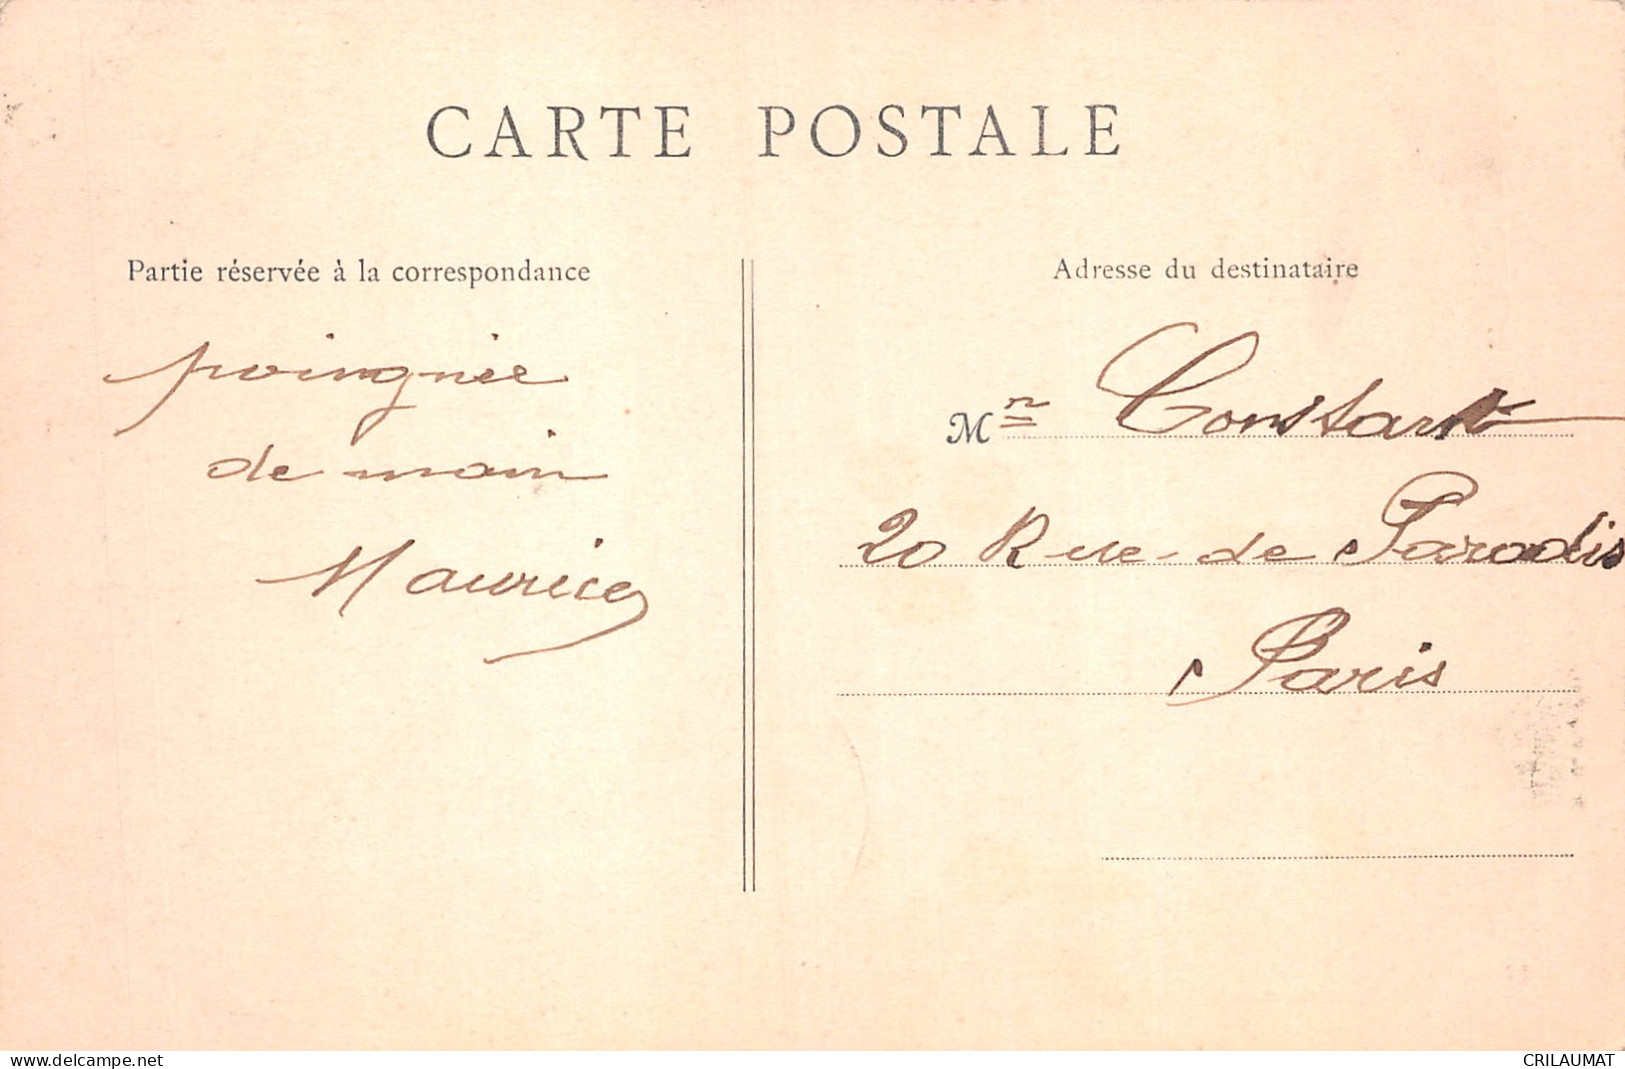 CARTE POSTALE
Partie réservée à la correspondance
poingnée
de main
Maurice
Adresse du destinataire
Mr Constant
20 Rue de Paradis
Paris
www.delcampe.net
CRILAUMAT